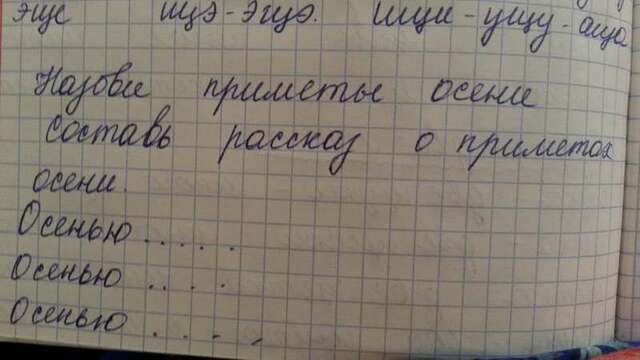 эще ищэ-эгцэ. ищи-ущу-аща
Назови приметы осени
составь рассказ о приметах
осени.
Осенью . . . . .
Осенью . . . .
Осенью . . . .